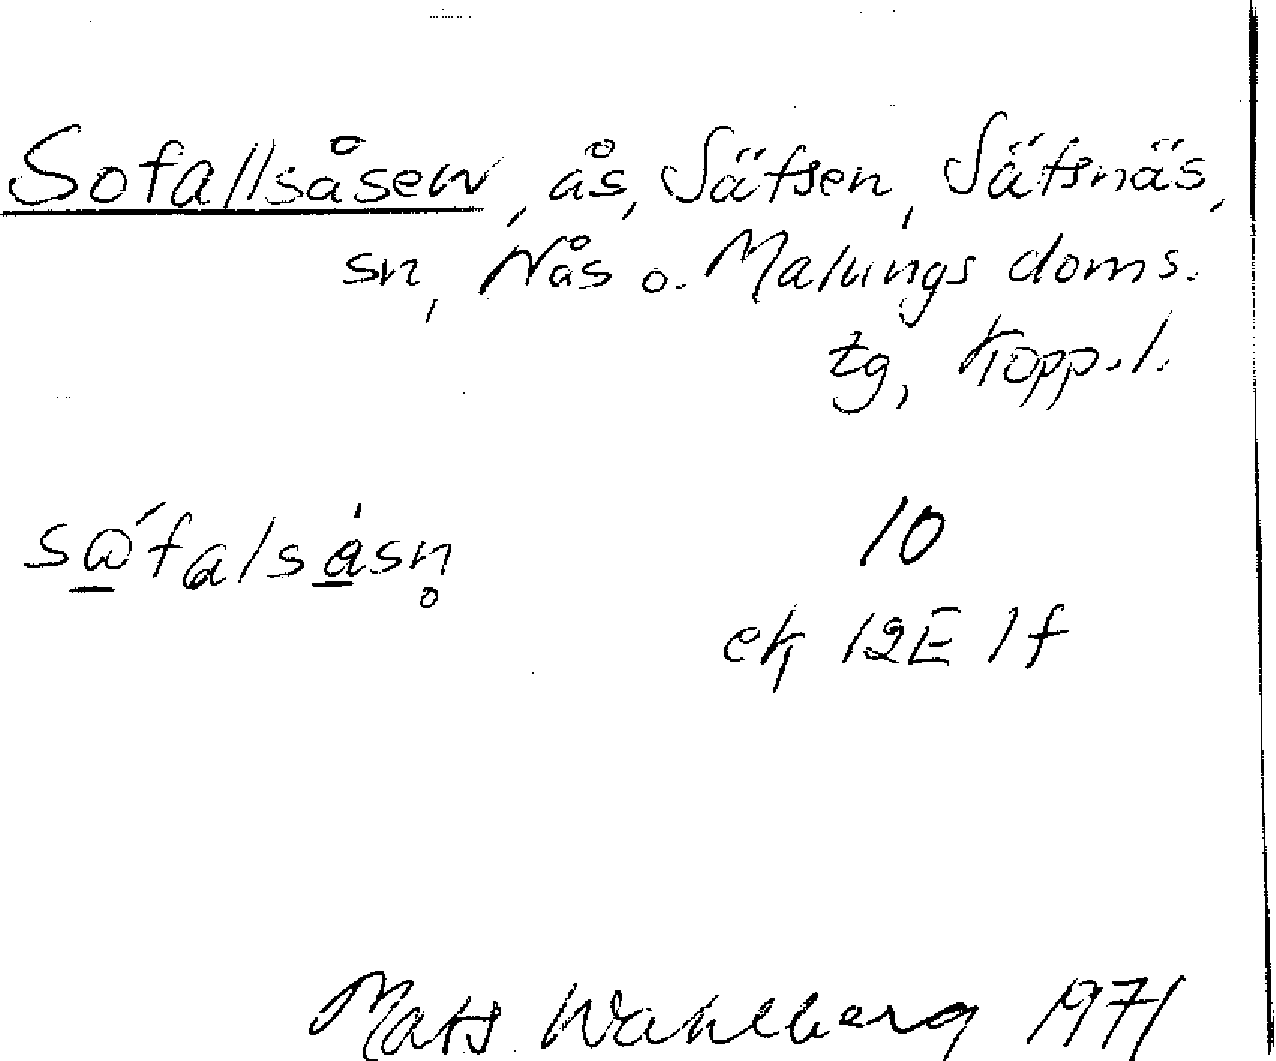 Sofallsåsen, ås, Säfsen, Säfsnäs,
sn, Nås o. Malungs doms.
tg, Kopp.l.
sɷ́falsåsn̥ 10
ek 12E 1f
Mats Wahlberg 1971